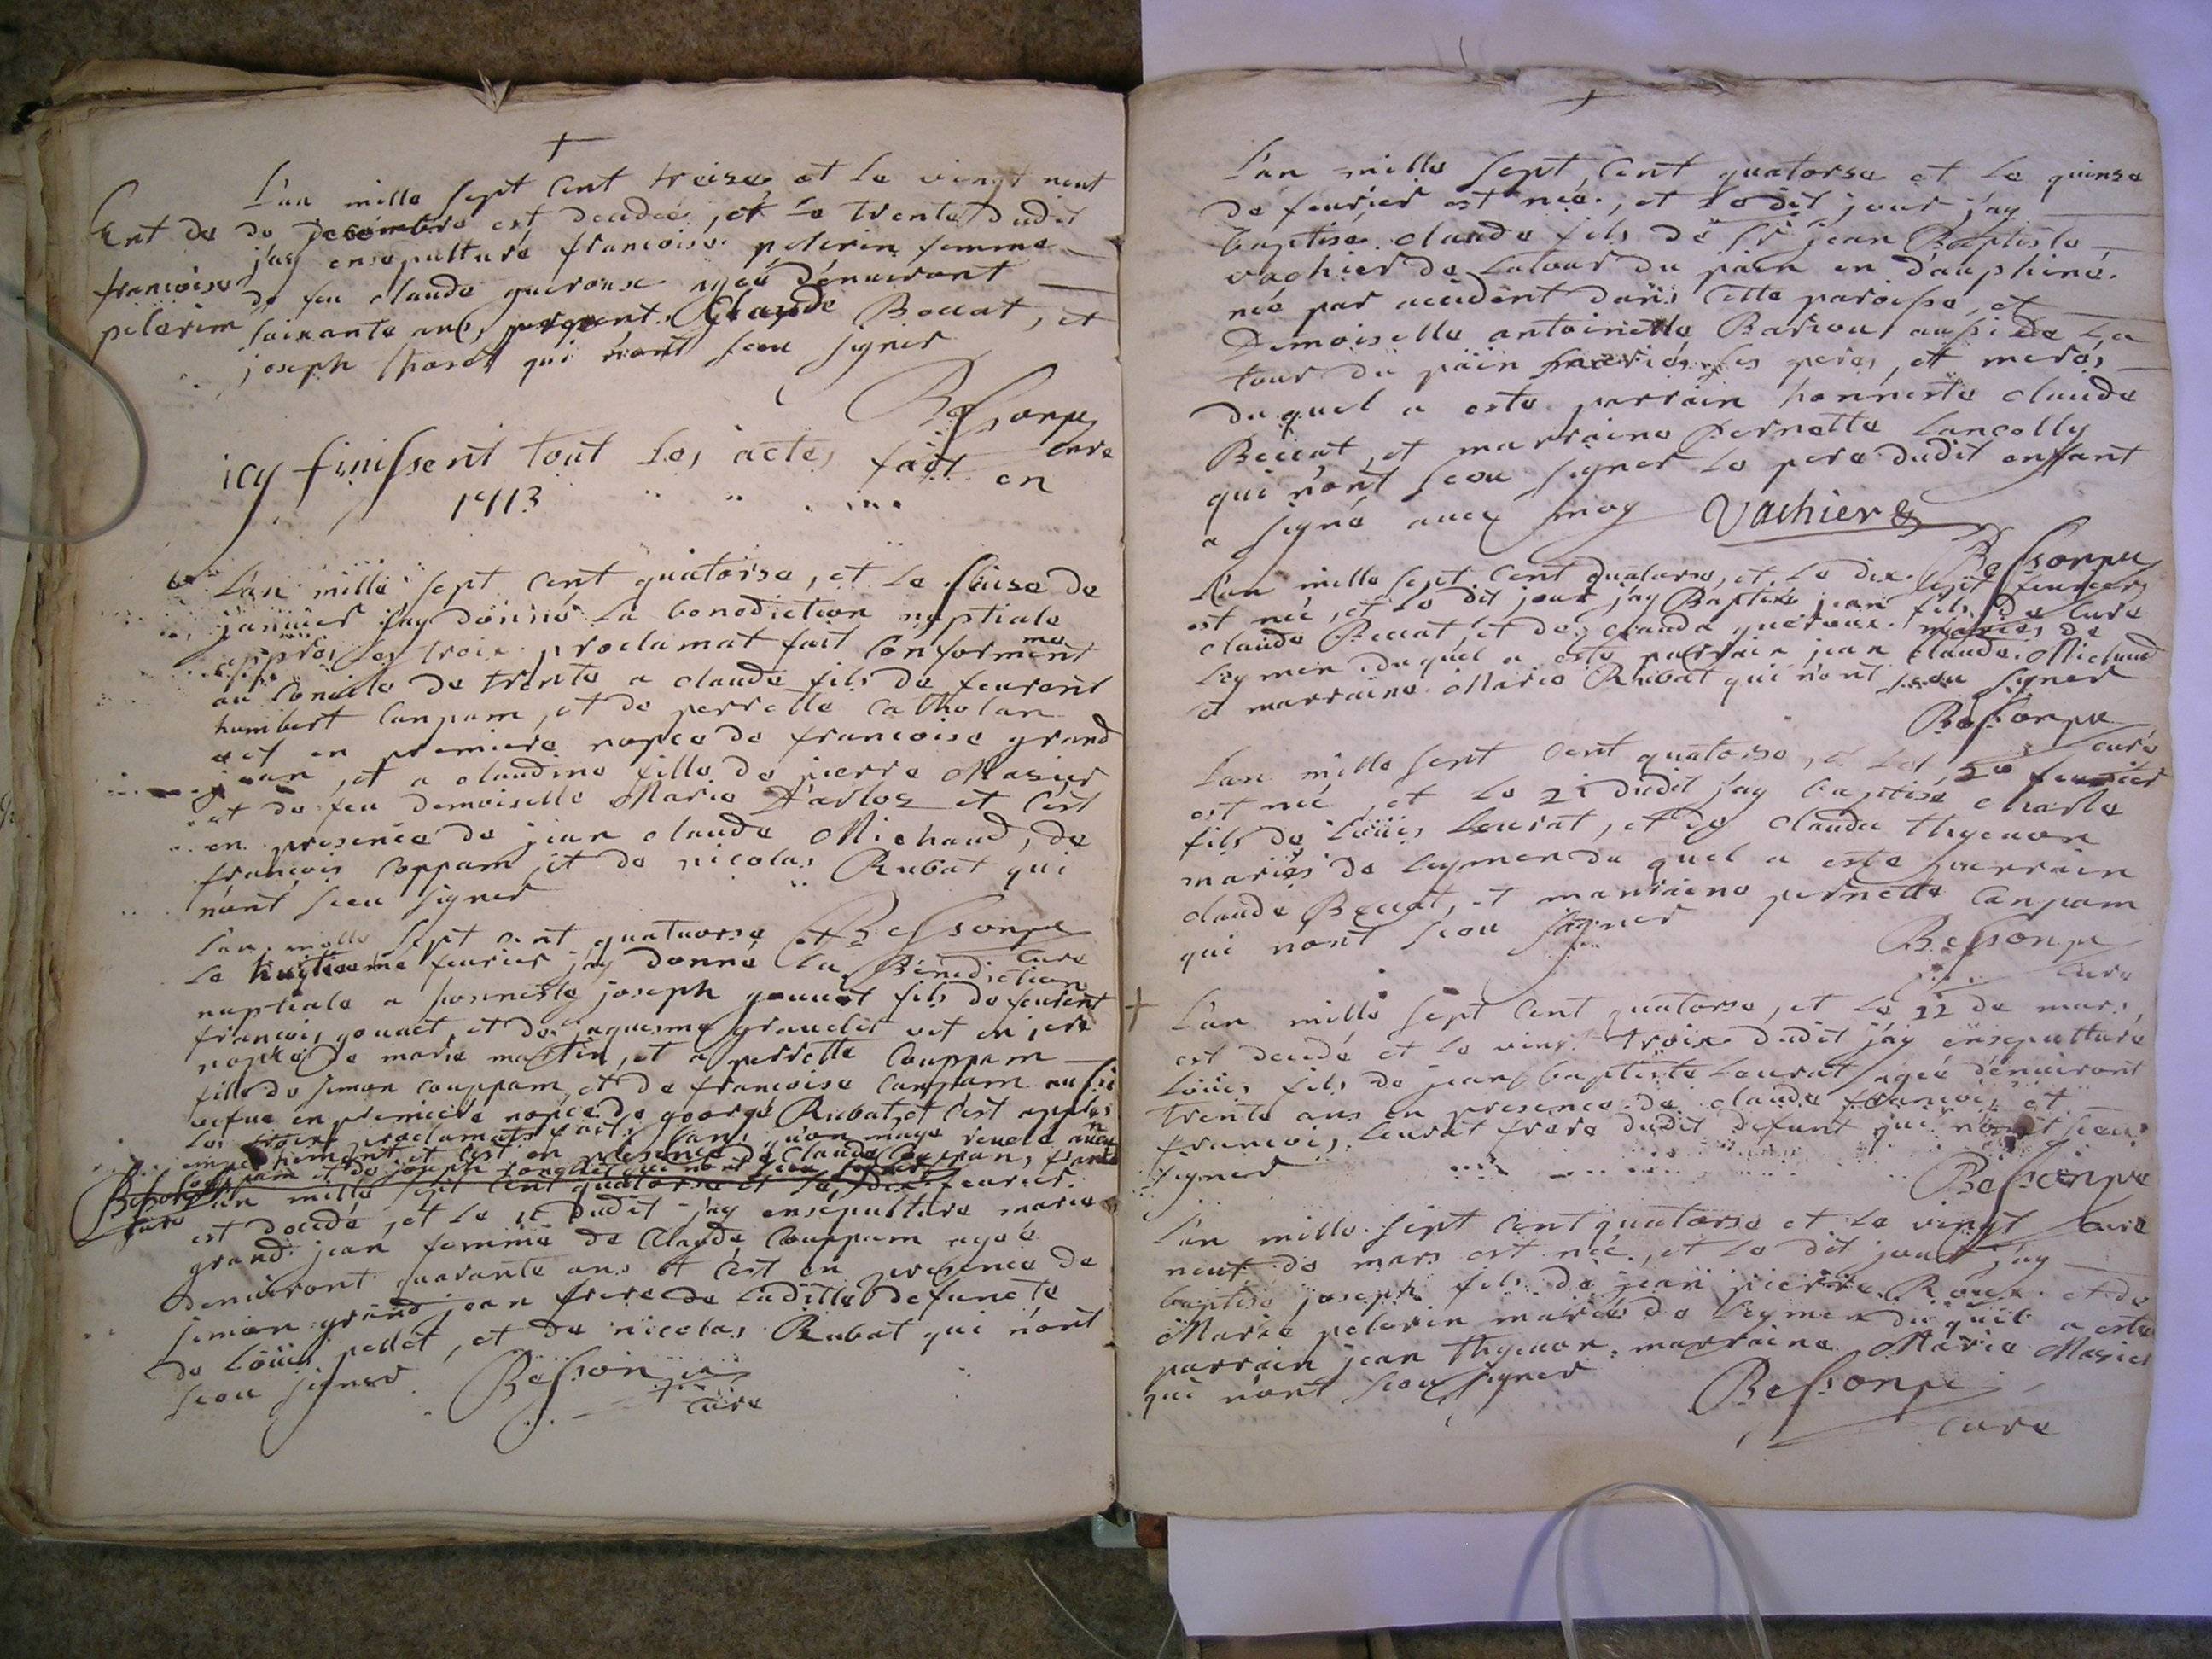 L'an mille sept cent treise, et le vingt neuf
Ent de
de decembre est decedée, et le trente dudit
j'ay ensepulturé francoise pelerin femme
francoise
de feu claude gueroux agée d'enuiront
pelerin
soixante ans, Claude Beccat, et
joseph qui n'ont sceu signer
Bessonpe
cure
icy finissent tout les actes fait en
1713
L'an mille sept cent quatorse, et le saise de
januier j'ay donné la benediction nuptiale
appres les troix proclamat fait conformement
au concile de trente a claude fils de feurent
humbert canpam, et de perrette catholan
et en premiere nopce de francoise grand
jean, et a claudine fille de pierre Masier
et de feu demoiselle Marie et c'est
en presence de jean claude Michaud, de
francois coppam, et de nicolas Rubat qui
n'ont sceu signer
Bessonpe
cure
L'an mille sept cent quatuorse et
le huictiesme feurier j'ay donné la Bénédiction
nuptiale a honneste joseph gouuet fils de feurent
francois gouuet, et de jaquesme grandit vet en iere
nopce de marie martin, et a perrette Couppam
fille de simon couppam, et de francoise canpam aussi
vefue en premiere nopce de george Rubat, et c'est appres
les troix proclamats faits sans qu'on maye reuele aucun
empechement et c'est en presence de Claude
couppam et de joseph qui n'ont sceu signer
Bessonpe
cure
L'an mille sept cent quatorse et le dix feurier
est decedé, et le 11 dudit j'ay ensepulturé marie
grand jean femme de Claude Couppam agée
denuiront quarante ans et c'est en presence de
simon grand jean frere de laditte defuncte
de Loüis pellet, et de nicolas Rubat qui n'ont
sceu signer
Bessonpe
cure
L'an mille sept cent quatorse et le quinse
de feurier est née, et le dit jour j'ay
baptisé claude fils de Sr jean Baptiste
vachier de Latour du pin en d'auphiné
née par accident dans cette paroisse, et
Demoiselle antoinette Bariou aussi de La
tour du pain mariés ses peres, et meres
du quel a este parrain honneste claude
Beccat, et marraine pernette Lancolly
qui n'ont sceu signer le pere dudit enffant
a signé auec moy
Vachier
Bessonpe
cure
L'an mille sept cent quatorse, et le dix sept feurier
est née, et le dit jour j'ay Baptisé jean fils de
claude Beccat, et de claude gueroux mariés de
Leymen duquel a este parrain jean claude Michaud
et marraine Marie Rubat qui n'ont sceu signer
Bessonpe
curé
L'an mille sept cent quatorse, et le 20 feurier
est née, et le 21 dudit j'ay baptisé charle
fils de Loüis Leurat, et de claudu thyeuon
mariés de Leymen du quel a este parrain
claude Beccat, et marraine pernette Canpam
qui n'ont sceu signer
Bessonpe
cure
L'an mille sept cent quatorse, et le 22 de mars
est decedé et le vint troix dudit j'ay ensepulturé
Loüis fils de jean baptiste Leurat agée d'enuiront
trente ans en presence de claude francois et
francois Leurat frere dudit defunt qui n'ont sceu
signer
Bessonpe
cure
L'an mille sept cent quatorse et le vingt
neuf de mars est née, et le dit jour j'ay
baptisé joseph fils de jean pierre Roux et de
Marie pelerin mariés de Leymen du quel a este
parrain jean thyeuon, marraine Marie Masier
qui n'ont sceu signer
Bessonpe
cure